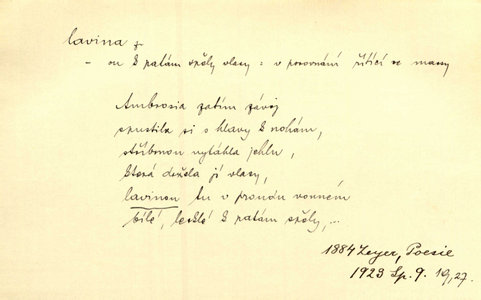 lavina ž
– ou k patám spěly vlasy : v porovnání řítící se massy
Ambrosia zatím závoj
spustila si s hlavy k nohám,
stříbrnou vytáhla jehlu,
která držela jí vlasy,
lavinou tu v proudu vonném
bílé, lesklé k patám spěly, ...
1884 Zeyer, Poesie
1923 Sp. 9. 19, 27.